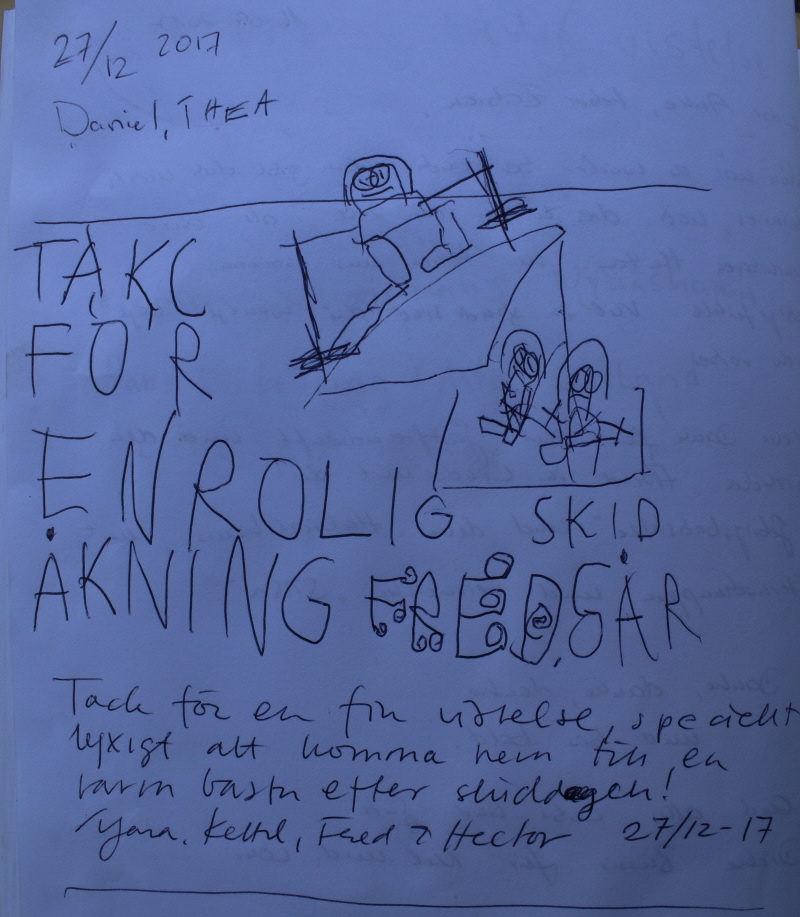 27/12 2017
Daniel, THEA
TAKC
FÖR
EN ROLIG SKID
ÅKNING FRED, GÅR
Tack för en fin vistelse, speciellt
lyxigt att komma hem till en
varm bastu efter skiddagen!
Kettil, Fred & Hector 27/12-17